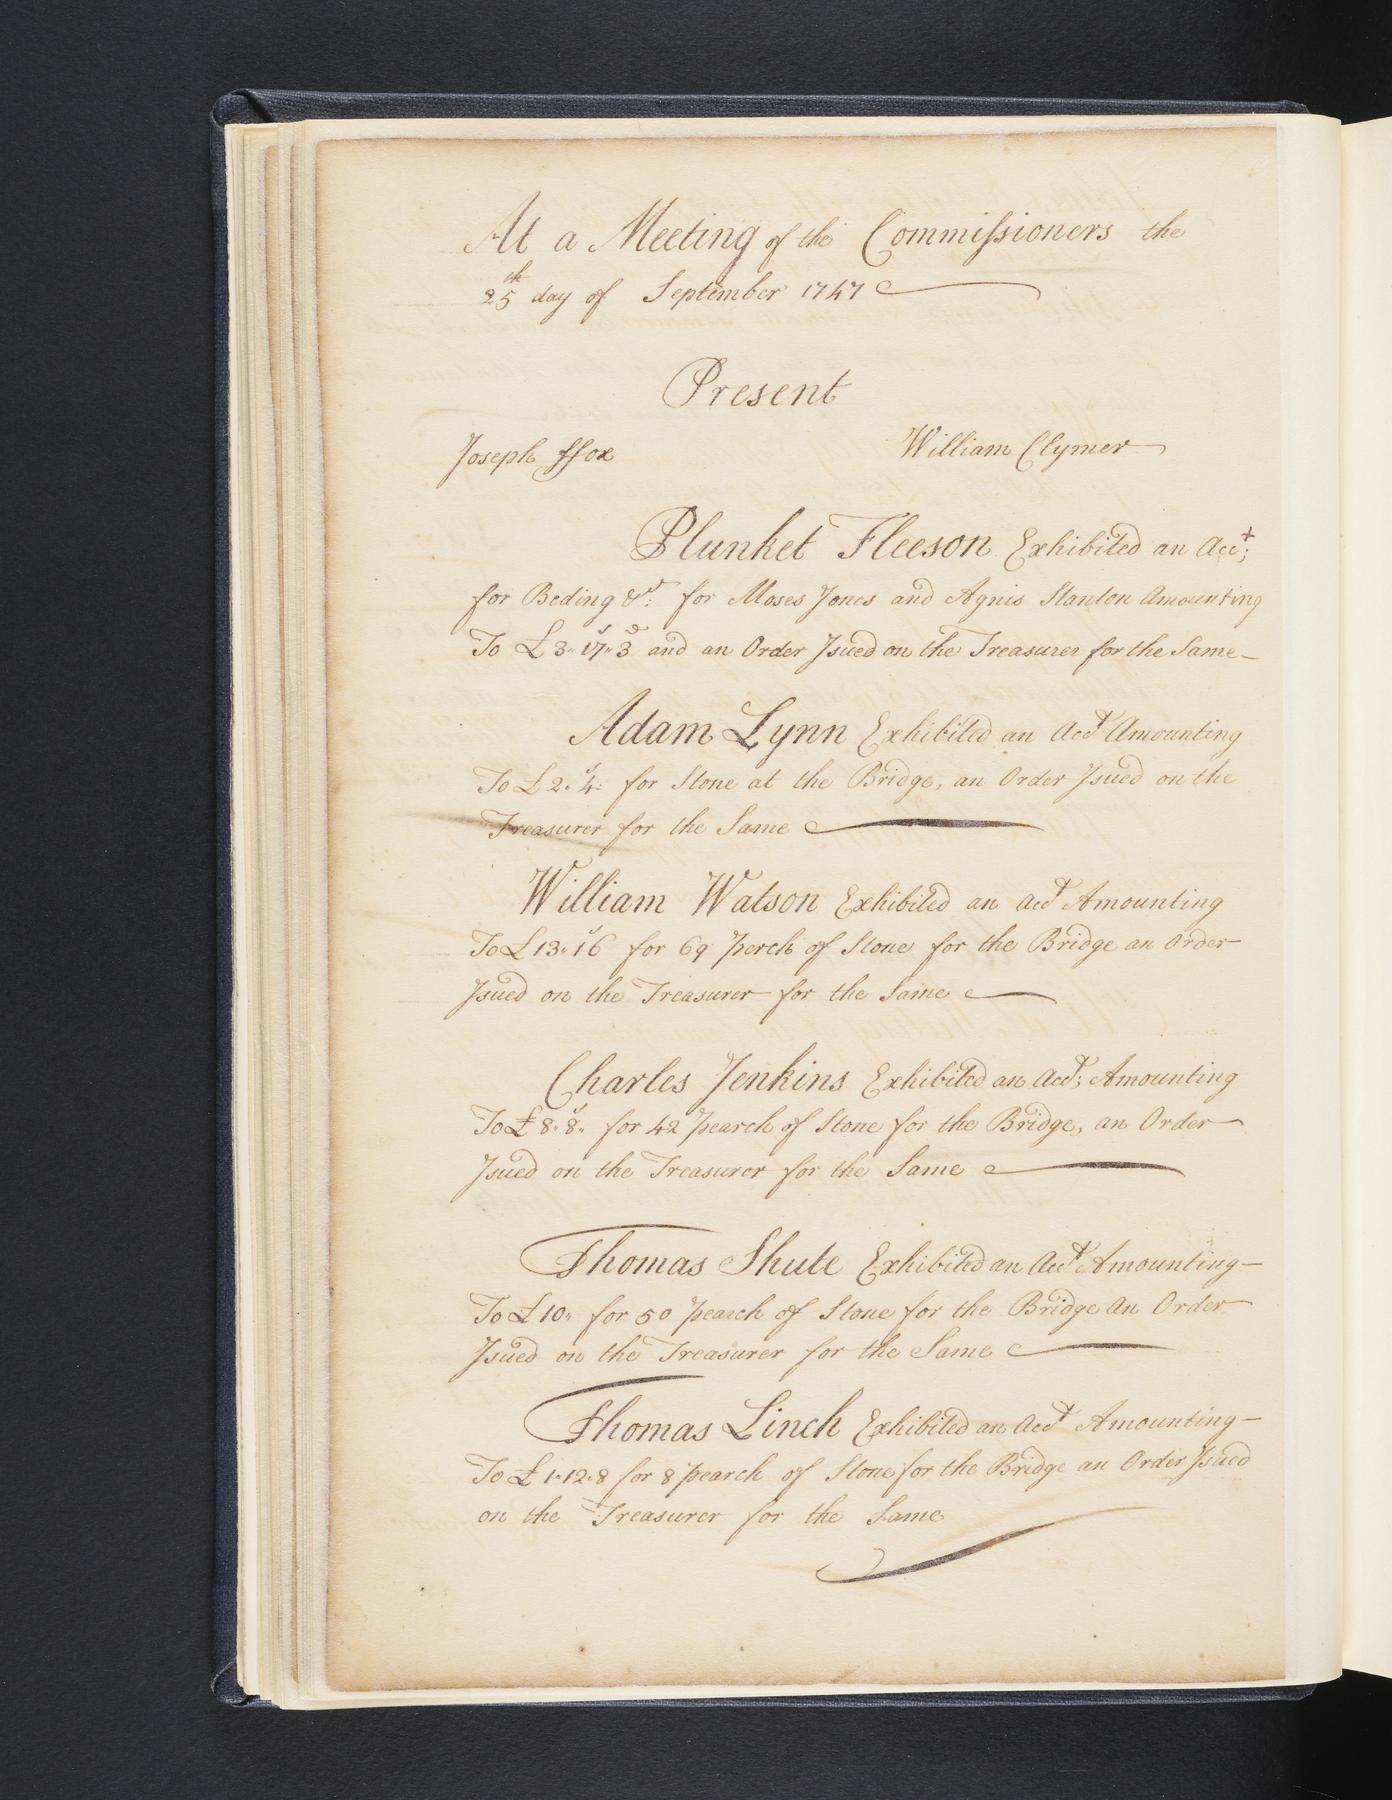 At a Meeting of the Commissioners the
25th day of September 1747
Present
Joseph ffox William Clymer
Plunket Fleeson Exhibited an Acct;
for Beding &c: for Moses Jones and Agnis Stanton Amounting
To £3"17s"3d and an Order Isued on the Treasurer for the Same
Adam Lynn Exhibited an Acct Amounting
To £2"4s: for Stone at the Bridge, an Order Isued on the
Treasurer for the Same
William Watson Exhibited an acct Amounting
To £13"16s for 69 perch of Stone for the Bridge an Order
Isued on the Treasurer for the Same
Charles Jenkins Exhibited an Acct; Amounting
To £8"8s" for 42 pearch of Stone for the Bridge, an Order
Isued on the Treasurer for the Same
Thomas Shute Exhibited an Acct Amounting
To £10" for 50 pearch of Stone for the Bridge An Order
Isued on the Treasurer for the Same
Thomas Linch Exhibited an Acct Amounting
To £1"12"8 for 8 pearch of Stone for the Bridge an Order Isued
on the Treasurer for the Same